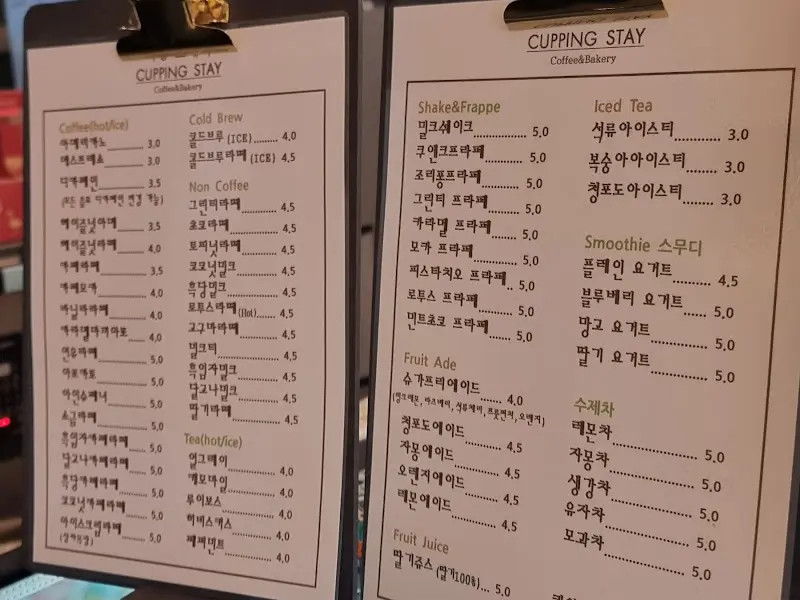 CUPPING STAY
Coffee&Bakery
Coffee(hot/ice)
아메리카노 3.0
에스프레소 3.0
디카페인 3.5
(모든 음료 디카페인 변경 가능)
헤이즐넛아메 3.5
헤이즐넛라떼 4.0
카페라떼 3.5
카페모카 4.0
바닐라라떼 4.0
카라멜마끼아또 4.0
연유라떼 5.0
아포가토 5.0
아인슈페너 5.0
소금라떼 5.0
흑임자카페라떼 5.0
달고나카페라떼 5.0
흑당카페라떼 5.0
코코넛카페라떼 5.0
아이스크림라떼 5.0
Cold Brew
콜드브루 (ICE) 4.0
콜드브루라떼 (ICE) 4.5
Non Coffee
그린티라떼 4.5
초코라떼 4.5
토피넛라떼 4.5
코코넛밀크 4.5
흑당밀크 4.5
로투스라떼 (Hot) 4.5
고구마라떼 4.5
밀크티 4.5
흑임자밀크 4.5
달고나밀크 4.5
딸기라떼 4.5
Tea(hot/ice)
얼그레이 4.0
캐모마일 4.0
루이보스 4.0
히비스커스 4.0
페퍼민트 4.0
CUPPING STAY
Coffee&Bakery
Shake&Frappe
밀크쉐이크 5.0
쿠앤크프라페 5.0
조리퐁프라페 5.0
그린티 프라페 5.0
카라멜 프라페 5.0
모카 프라페 5.0
피스타치오 프라페 5.0
로투스 프라페 5.0
민트초코 프라페 5.0
Fruit Ade
슈가프리에이드 4.0
청포도에이드 4.5
자몽에이드 4.5
오렌지에이드 4.5
레몬에이드 4.5
Fruit Juice
딸기쥬스 (딸기100%) 5.0
Iced Tea
석류아이스티 3.0
복숭아아이스티 3.0
청포도아이스티 3.0
Smoothie 스무디
플레인 요거트 4.5
블루베리 요거트 5.0
망고 요거트 5.0
딸기 요거트 5.0
수제차
레몬차 5.0
자몽차 5.0
생강차 5.0
유자차 5.0
모과차 5.0